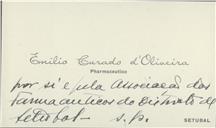 Emilio Curado d'Oliveira
Pharmaceutico
por si e pela Associação dos
Farmaceuticos do Districto de
Setubal - s. p.
SETUBAL